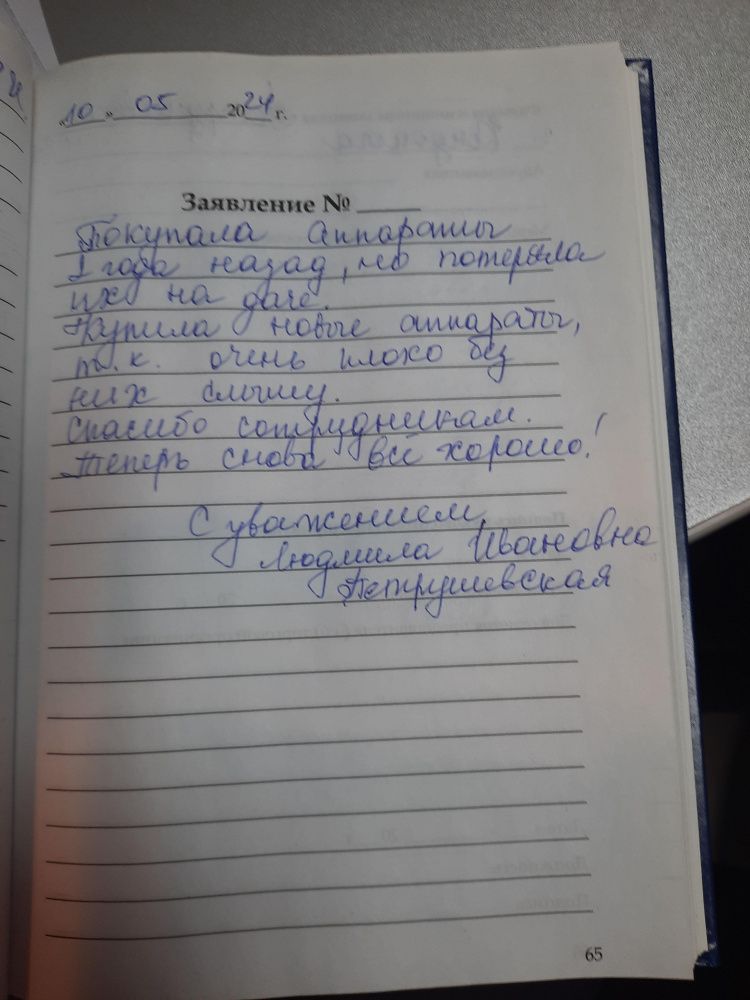 «10» 05 2024 г.
Заявление № ____
Покупала аппараты
1 года назад, но потеряла
их на даче.
Купила новые аппараты,
т.к. очень плохо без
них слышу.
Спасибо сотрудникам.
Теперь снова всё хорошо!
С уважением,
Людмила Ивановна
Петрушевская
65